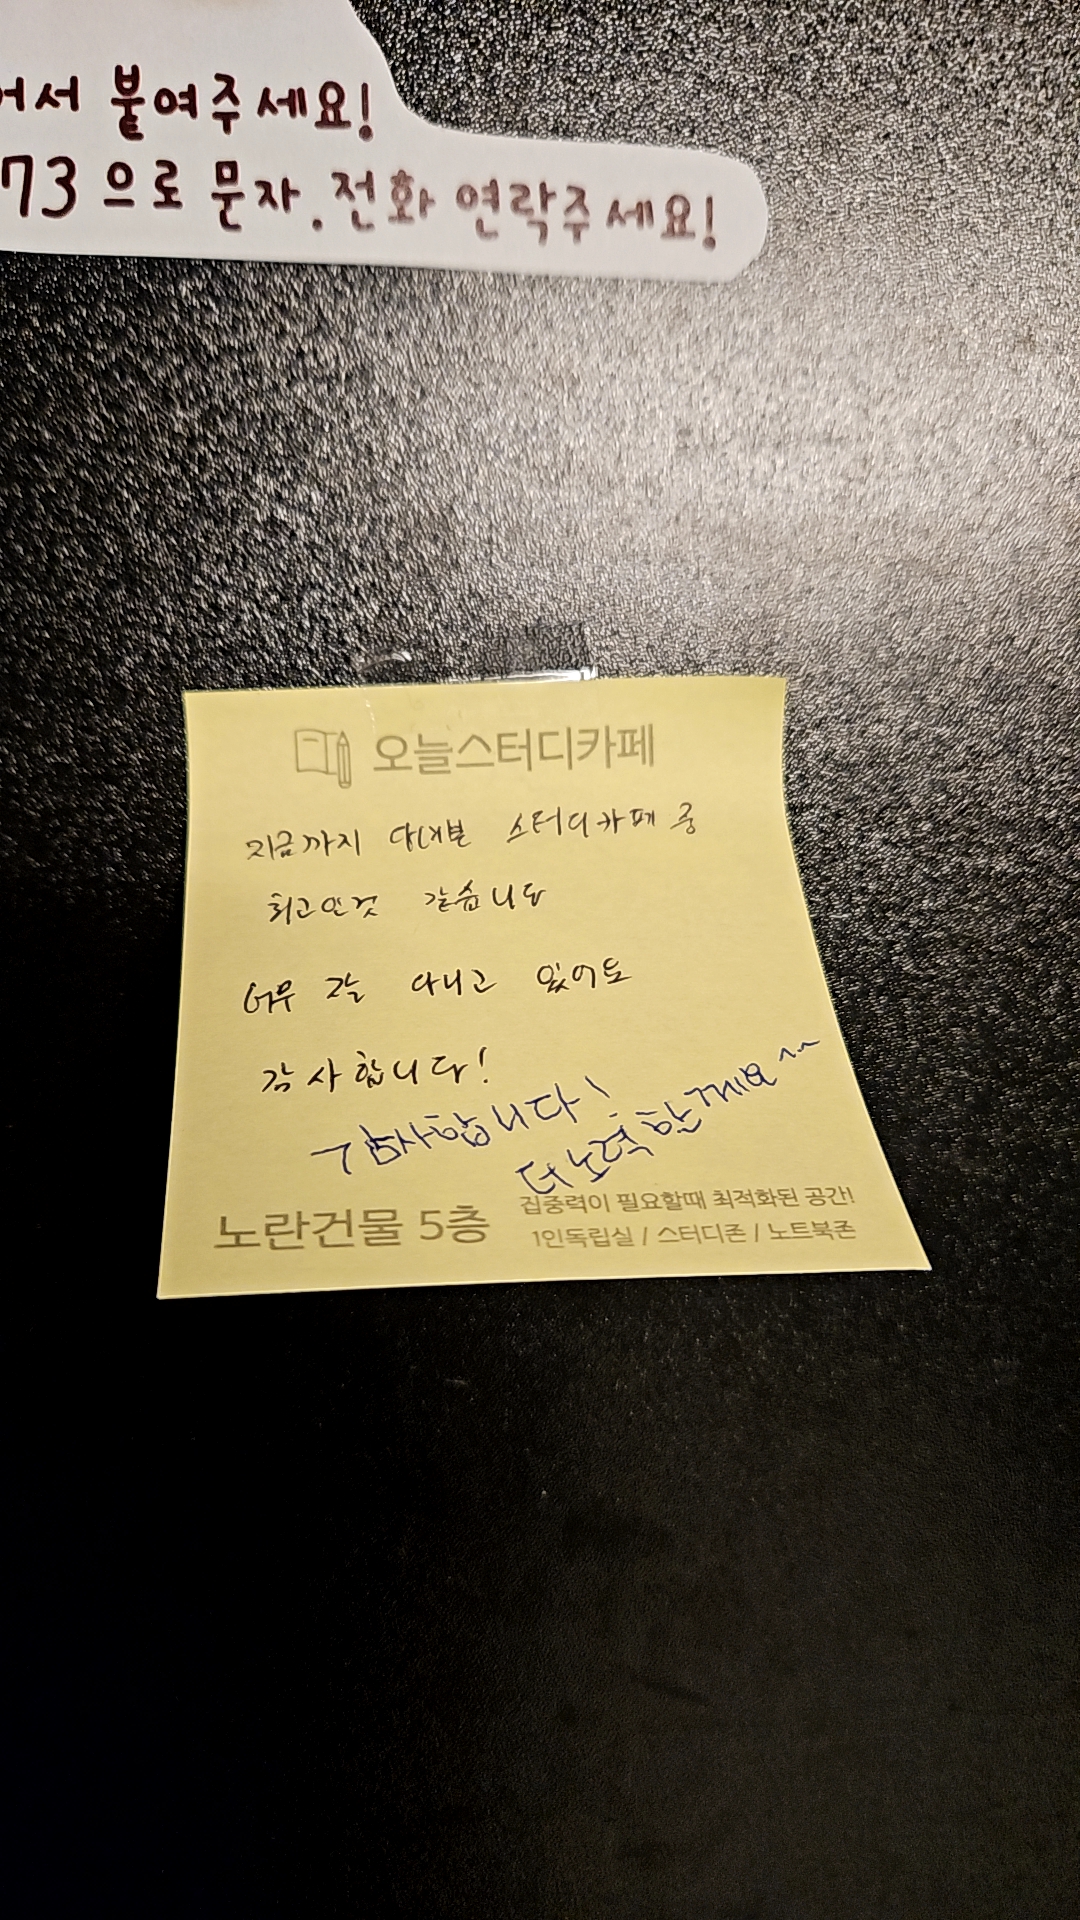 어서 붙여주세요!
73으로 문자.전화 연락주세요!
오늘스터디카페
지금까지 다녀본 스터디카페 중
최고인것 같습니다
너무 잘 다니고 있어요
감사합니다!
감사합니다!
더 노력 할게요^^
노란건물 5층
집중력이 필요할때 최적화된 공간!
1인독립실 / 스터디존 / 노트북존